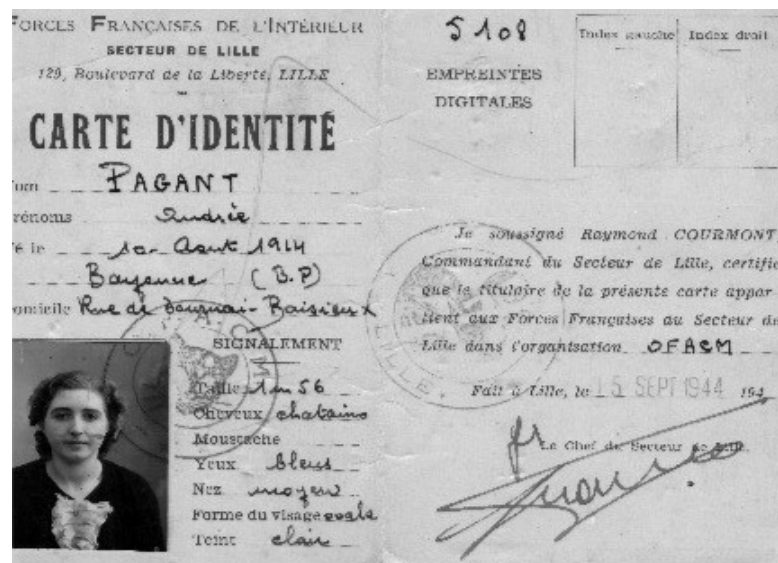 FORCES FRANÇAISES DE L'INTÉRIEUR
SECTEUR DE LILLE
129, Boulevard de la Liberté, LILLE
CARTE D'IDENTITÉ
Nom PAGANT
Prénoms Andrée
Né le 10 Aout 1914
Bayonne (B.P)
Domicile Rue de Tournai - Baisieux
SIGNALEMENT
Taille 1m56
Cheveux chatains
Moustache
Yeux bleus
Nez moyen
Forme du visage ovale
Teint clair
5108
EMPREINTES
DIGITALES
Index gauche
Index droit
Je soussigné Raymond COURMONT
Commandant du Secteur de Lille, certifie
que le titulaire de la présente carte appar-
tient aux Forces Françaises au Secteur de
Lille dans l'organisation OFACM
Fait à Lille, le 15 SEPT 1944 194
Le Chef du Secteur de Lille.
LILLE